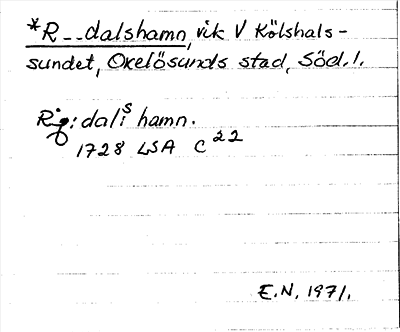 *R--dalshamn, vik V Kölshals-
sundet, Oxelösunds stad, Söd.l.
Rig: dalis hamn.
1728 LSA C 22
E.N. 1971.